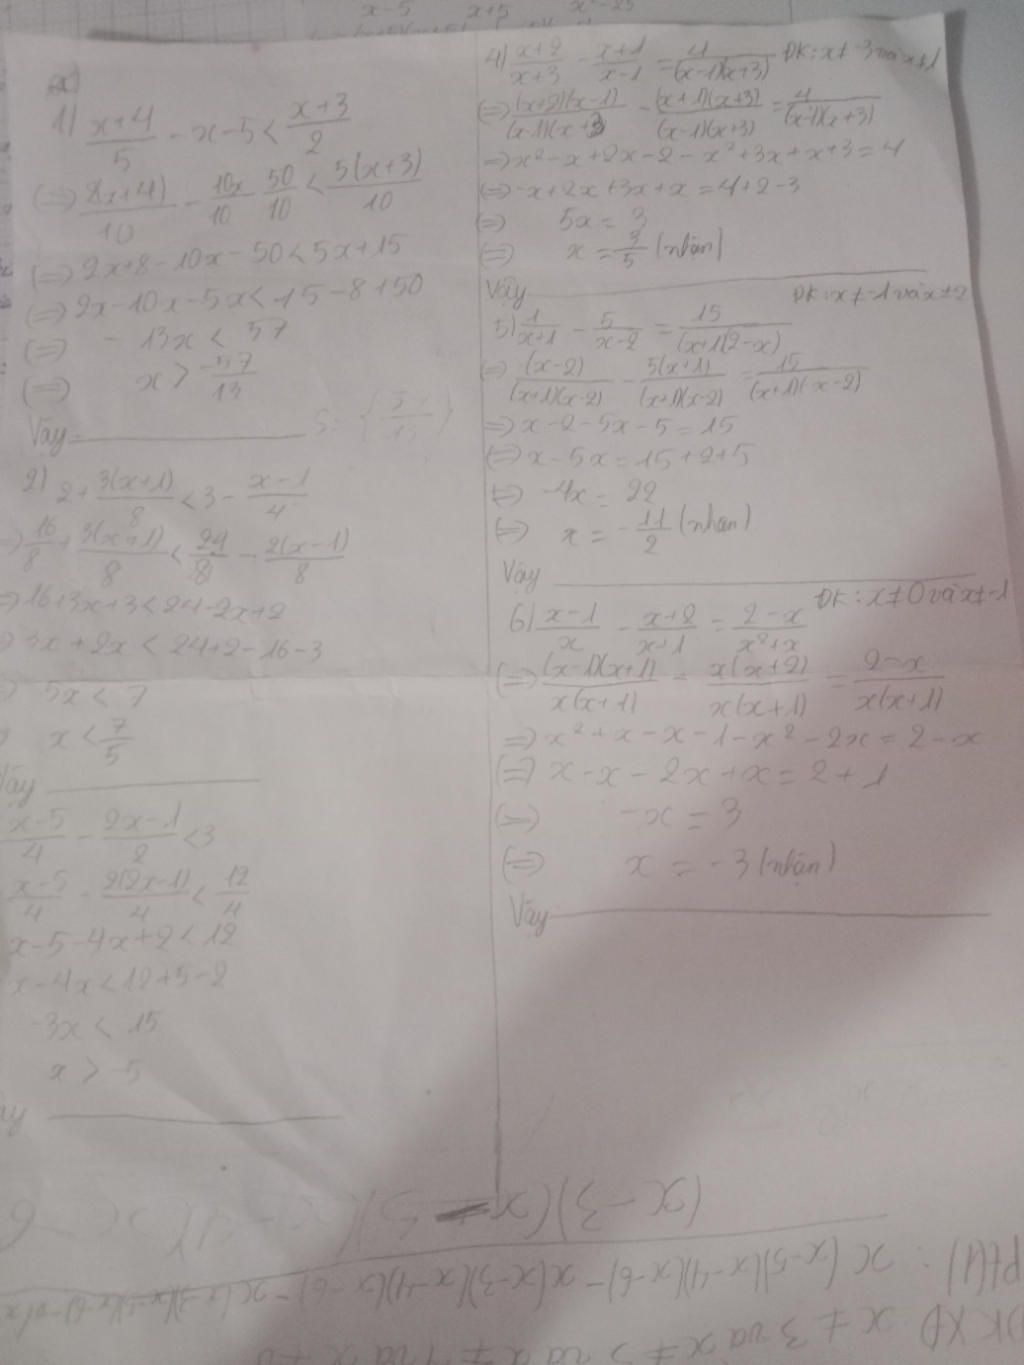 x-5 x+5 x²-25
1) (x+4)/5 - x - 5 < (x+3)/2
(=) 2(x+4)/10 - 10x/10 - 50/10 < 5(x+3)/10
(=) 2x+8-10x-50<5x+15
(=) 2x-10x-5x<15-8+50
(=) -13x < 57
(=) x > -57/13
Vậy
2) 2 + 3(x+1)/8 < 3 - (x-1)/4
=) 16/8 + 3(x+1)/8 < 24/8 - 2(x-1)/8
=) 16+3x+3<24-2x+2
=) 3x+2x<24+2-16-3
=) 5x<7
x < 7/5
Vậy
(x-5)/4 - (2x-1)/2 < 3
(x-5)/4 - 2(2x-1)/4 < 12/4
x-5-4x+2<12
x-4x<12+5-2
-3x < 15
x > -5
ậy
4) (x+2)/(x+3) - (x+1)/(x-1) = 4/(x-1)(x+3) ĐK: x≠-3 và x≠1
(=) (x+2)(x-1)/(x-1)(x+3) - (x+1)(x+3)/(x-1)(x+3) = 4/(x-1)(x+3)
=) x²-x+2x-2-x²+3x+x+3=4
(=) -x+2x+3x+x=4+2-3
(=) 5x = 3
(=) x = 3/5 (nhận)
Vậy
ĐK: x≠-1 và x≠2
5) 1/(x+1) - 5/(x-2) = 15/(x+1)(2-x)
=) (x-2)/(x+1)(x-2) - 5(x+1)/(x+1)(x-2) = 15/(x+1)(x-2)
=) x-2-5x-5=15
(=) x-5x=15+2+5
(=) -4x = 22
(=) x = -11/2 (nhận)
Vậy
ĐK: x≠0 và x≠-1
6) (x-1)/x - (x+2)/(x+1) = (2-x)/(x²+x)
(=) (x-1)(x+1)/x(x+1) - x(x+2)/x(x+1) = (2-x)/x(x+1)
=) x²+x-x-1-x²-2x=2-x
(=) x-x-2x+x=2+1
(=) -x = 3
(=) x = -3 (nhận)
Vậy
ĐKXĐ x≠3 và x≠5 và x≠4 và x≠6